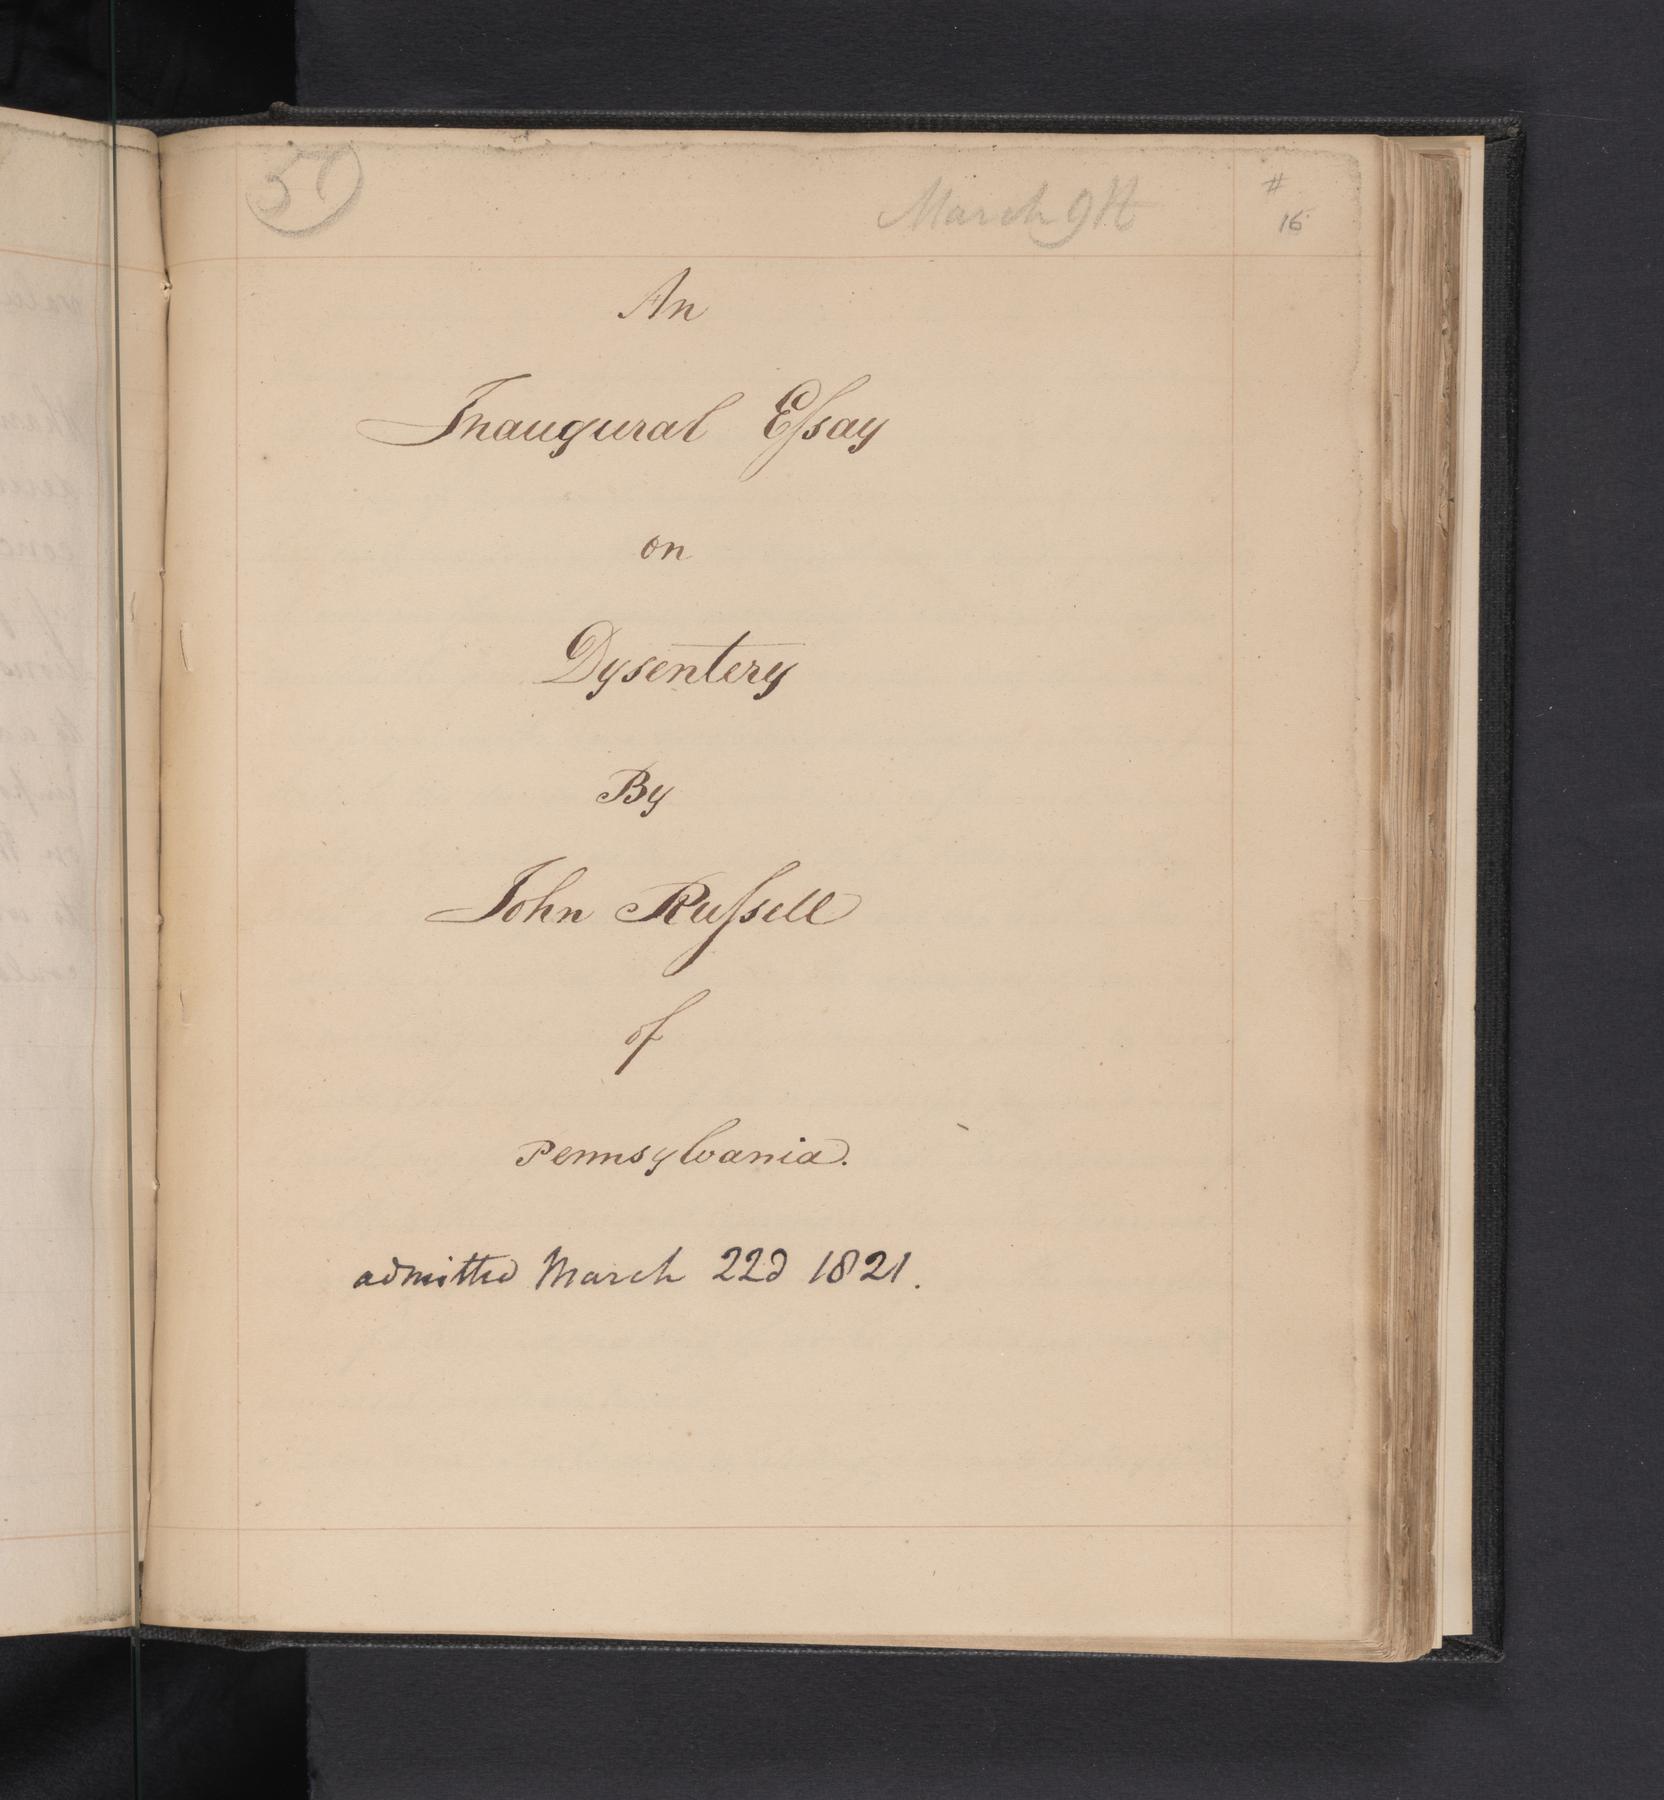 March 9th
#
16
An
Inaugural Eſsay
on
Dysentery
By
John Ruſsell
of
Pennsylvania.
admitted March 22d 1821.